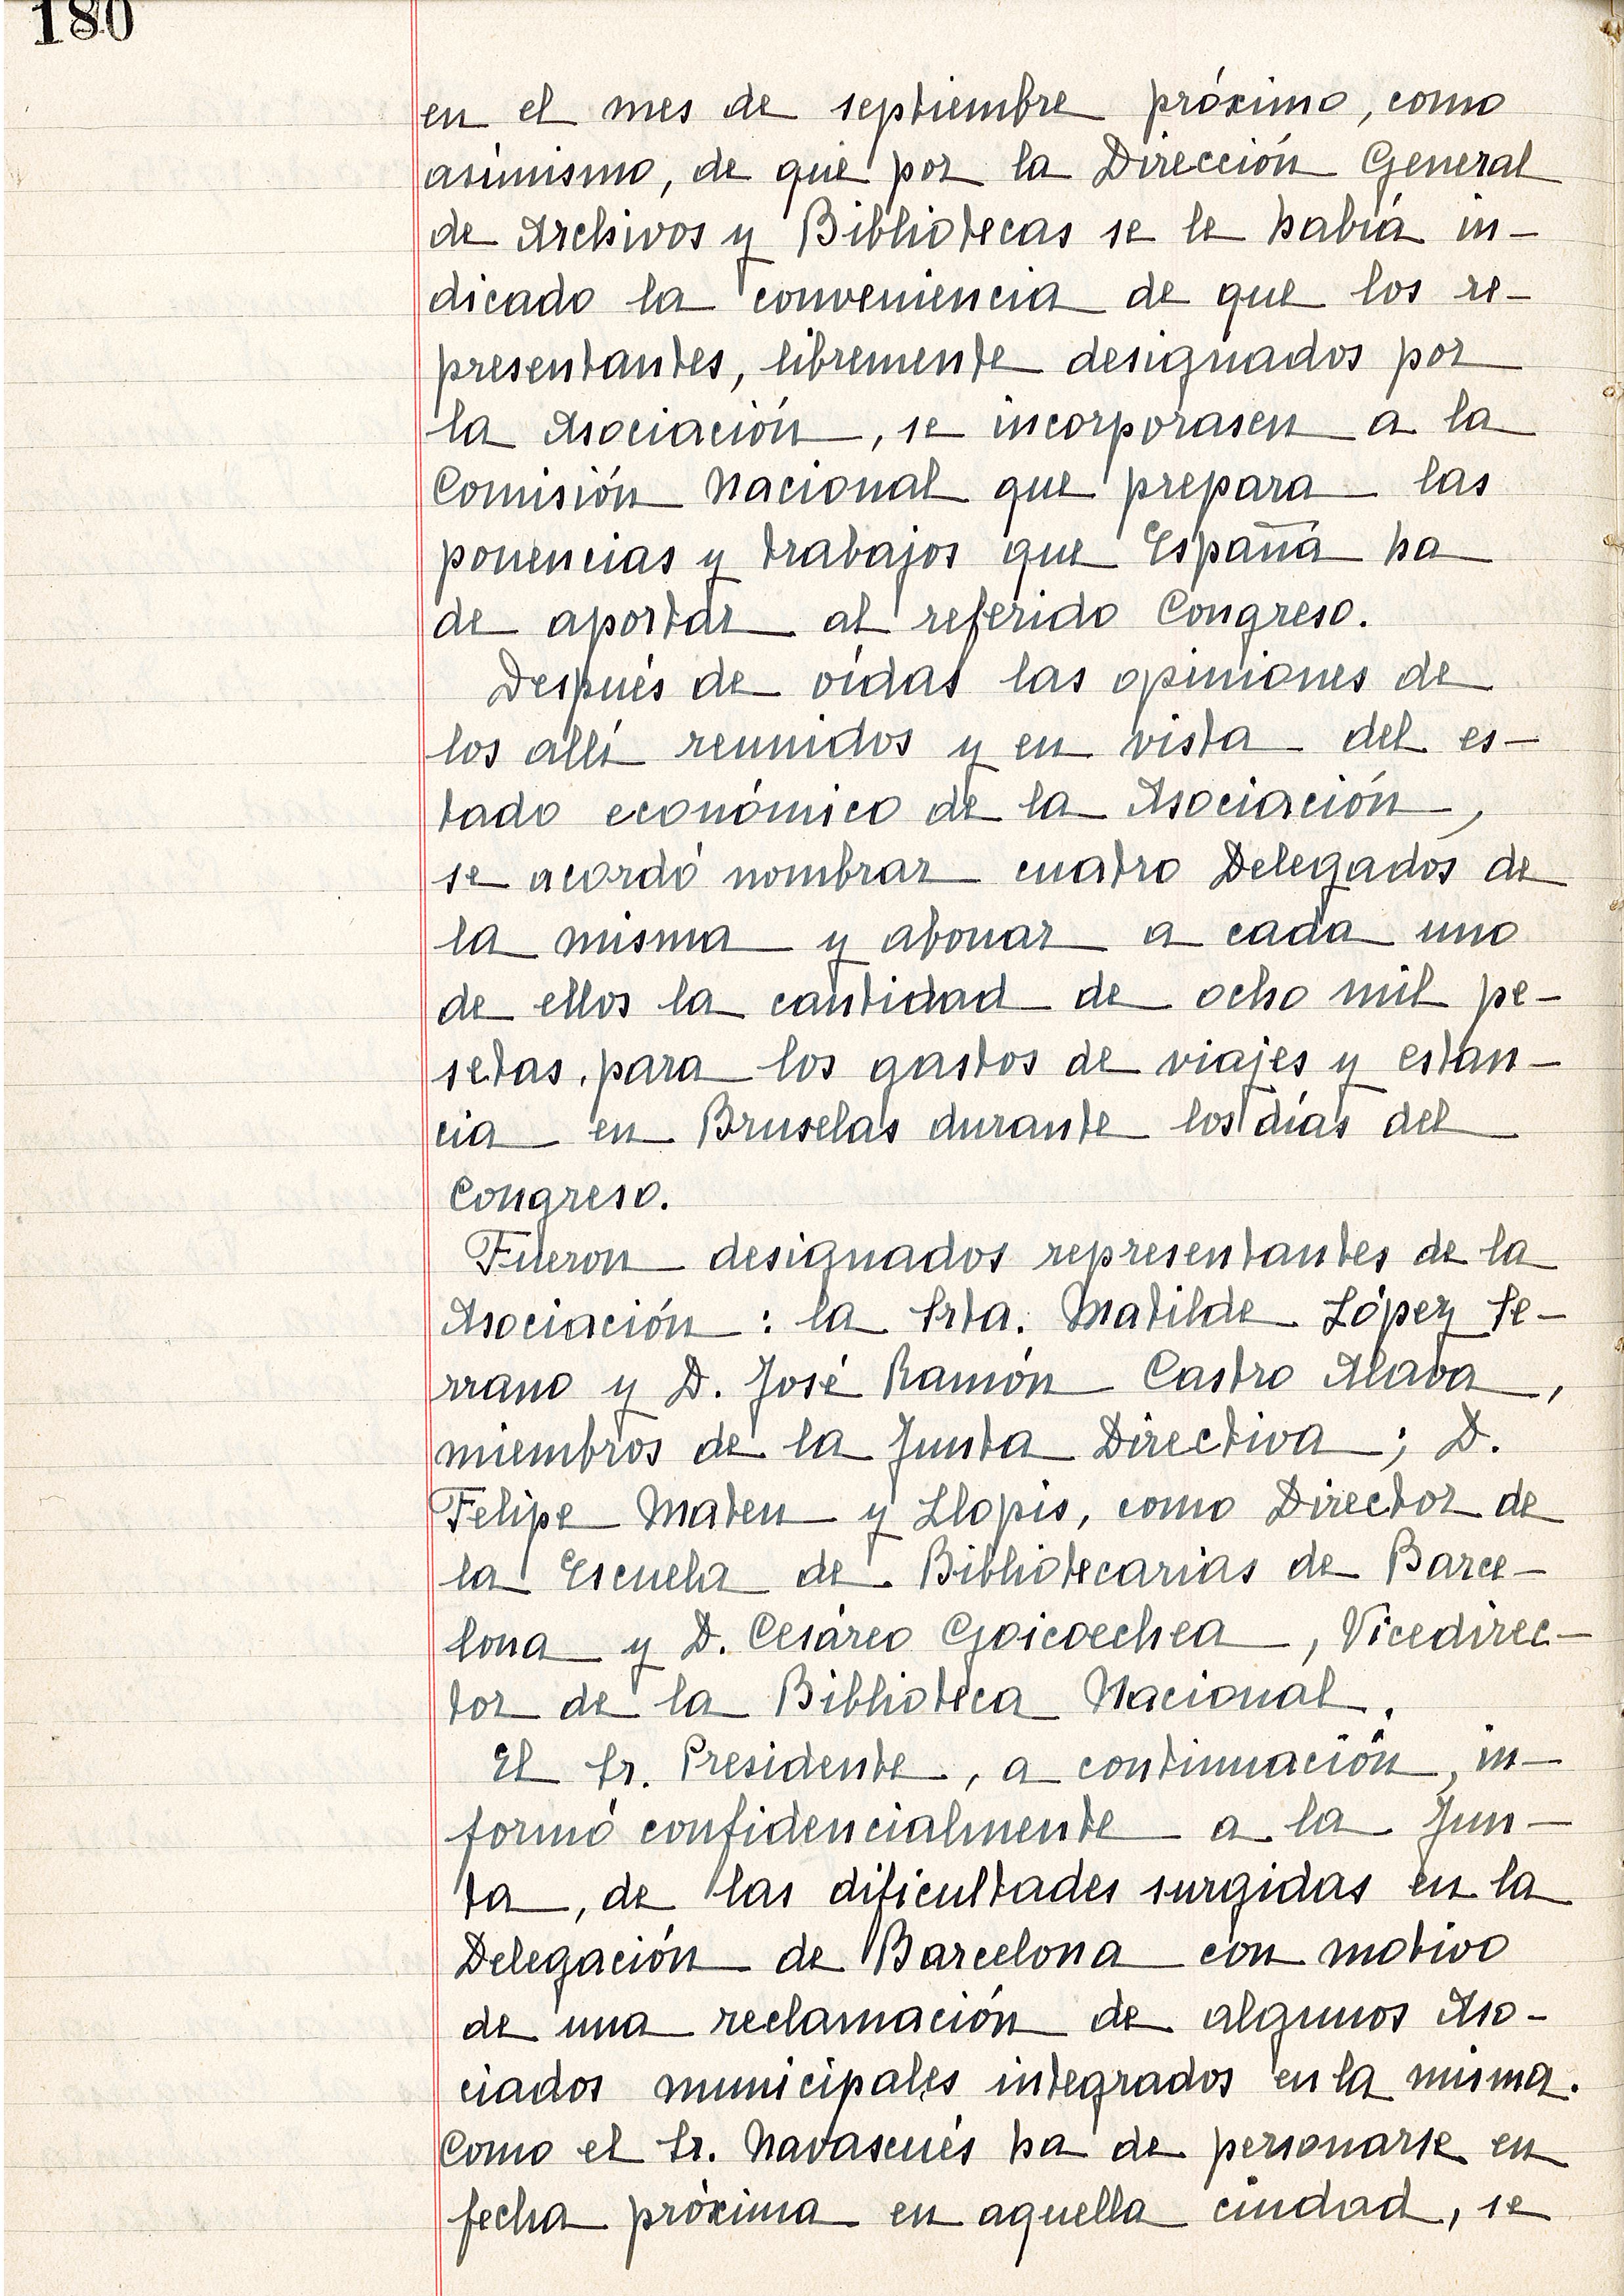 180
en el mes de septiembre próximo, como
asimismo, de que por la Dirección General
de Archivos y Bibliotecas se le había in-
dicado la conveniencia de que los re-
presentantes, libremente designados por
la Asociación, se incorporasen a la
Comisión Nacional que prepara las
ponencias y trabajos que España ha
de aportar al referido Congreso.
Después de oídas las opiniones de
los allí reunidos y en vista del es-
tado económico de la Asociación,
se acordó nombrar cuatro Delegados de
la misma y abonar a cada uno
de ellos la cantidad de ocho mil pe-
setas, para los gastos de viajes y estan-
cia en Bruselas durante los días del
Congreso.
Fueron designados representantes de la
Asociación: la Srta. Matilde López Se-
rrano y D. José Ramón Castro Alava,
miembros de la Junta Directiva; D.
Felipe Mateu y Llopis, como Director de
la Escuela de Bibliotecarias de Barce-
lona y D. Cesáreo Goicoechea, Vicedirec-
tor de la Biblioteca Nacional.
El Sr. Presidente, a continuación, in-
formó confidencialmente a la Jun-
ta, de las dificultades surgidas en la
Delegación de Barcelona con motivo
de una reclamación de algunos Aso-
ciados municipales integrados en la misma.
Como el Sr. Navascués ha de personarse en
fecha próxima en aquella ciudad, se